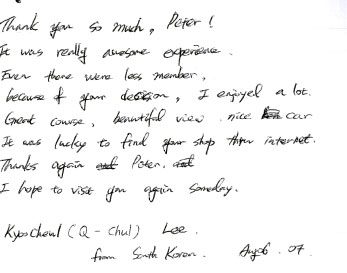 Thank you so much, Peter!
It was really awesome experience.
Even there were less member,
because of your decision, I enjoyed a lot.
Great course, beautiful view. nice car
It was lucky to find your shop thru internet.
Thanks again Peter.
I hope to visit you again someday.
KyooCheul (Q-chul) Lee.
from South Korea. Aug 6. 07.